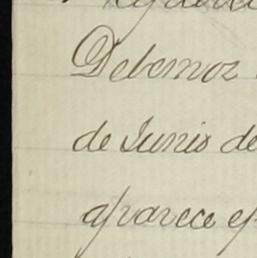 Debemoz
de Junio de
aparece